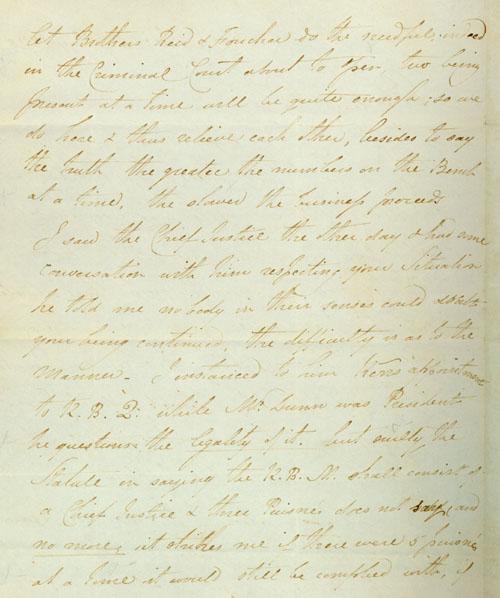 let Brothers Reid & Foucher do the needful, indeed
in the Criminal Court about to open two being
present at a time will be quite enough; so we
do here & thus relieve each other, besides to say
the truth the greater the numbers on the Bench
at a time, the slower the business proceeds
I saw the Chief Justice the other day & had some
conversation with him respecting your Situation
he told me nobody in their senses could
your being continued, the difficulty is as to the
manner. I instanced to him Kerr's appointment
to K. B. Q: while Mr. Dunn was President
he questions the legality of it. but surely the
Statute in saying the K. B. M. shall consist of
a Chief Justice & three Puisne does not say, and
no more, it strikes me if there were 5 puisné
at a time it would still be complied with, if